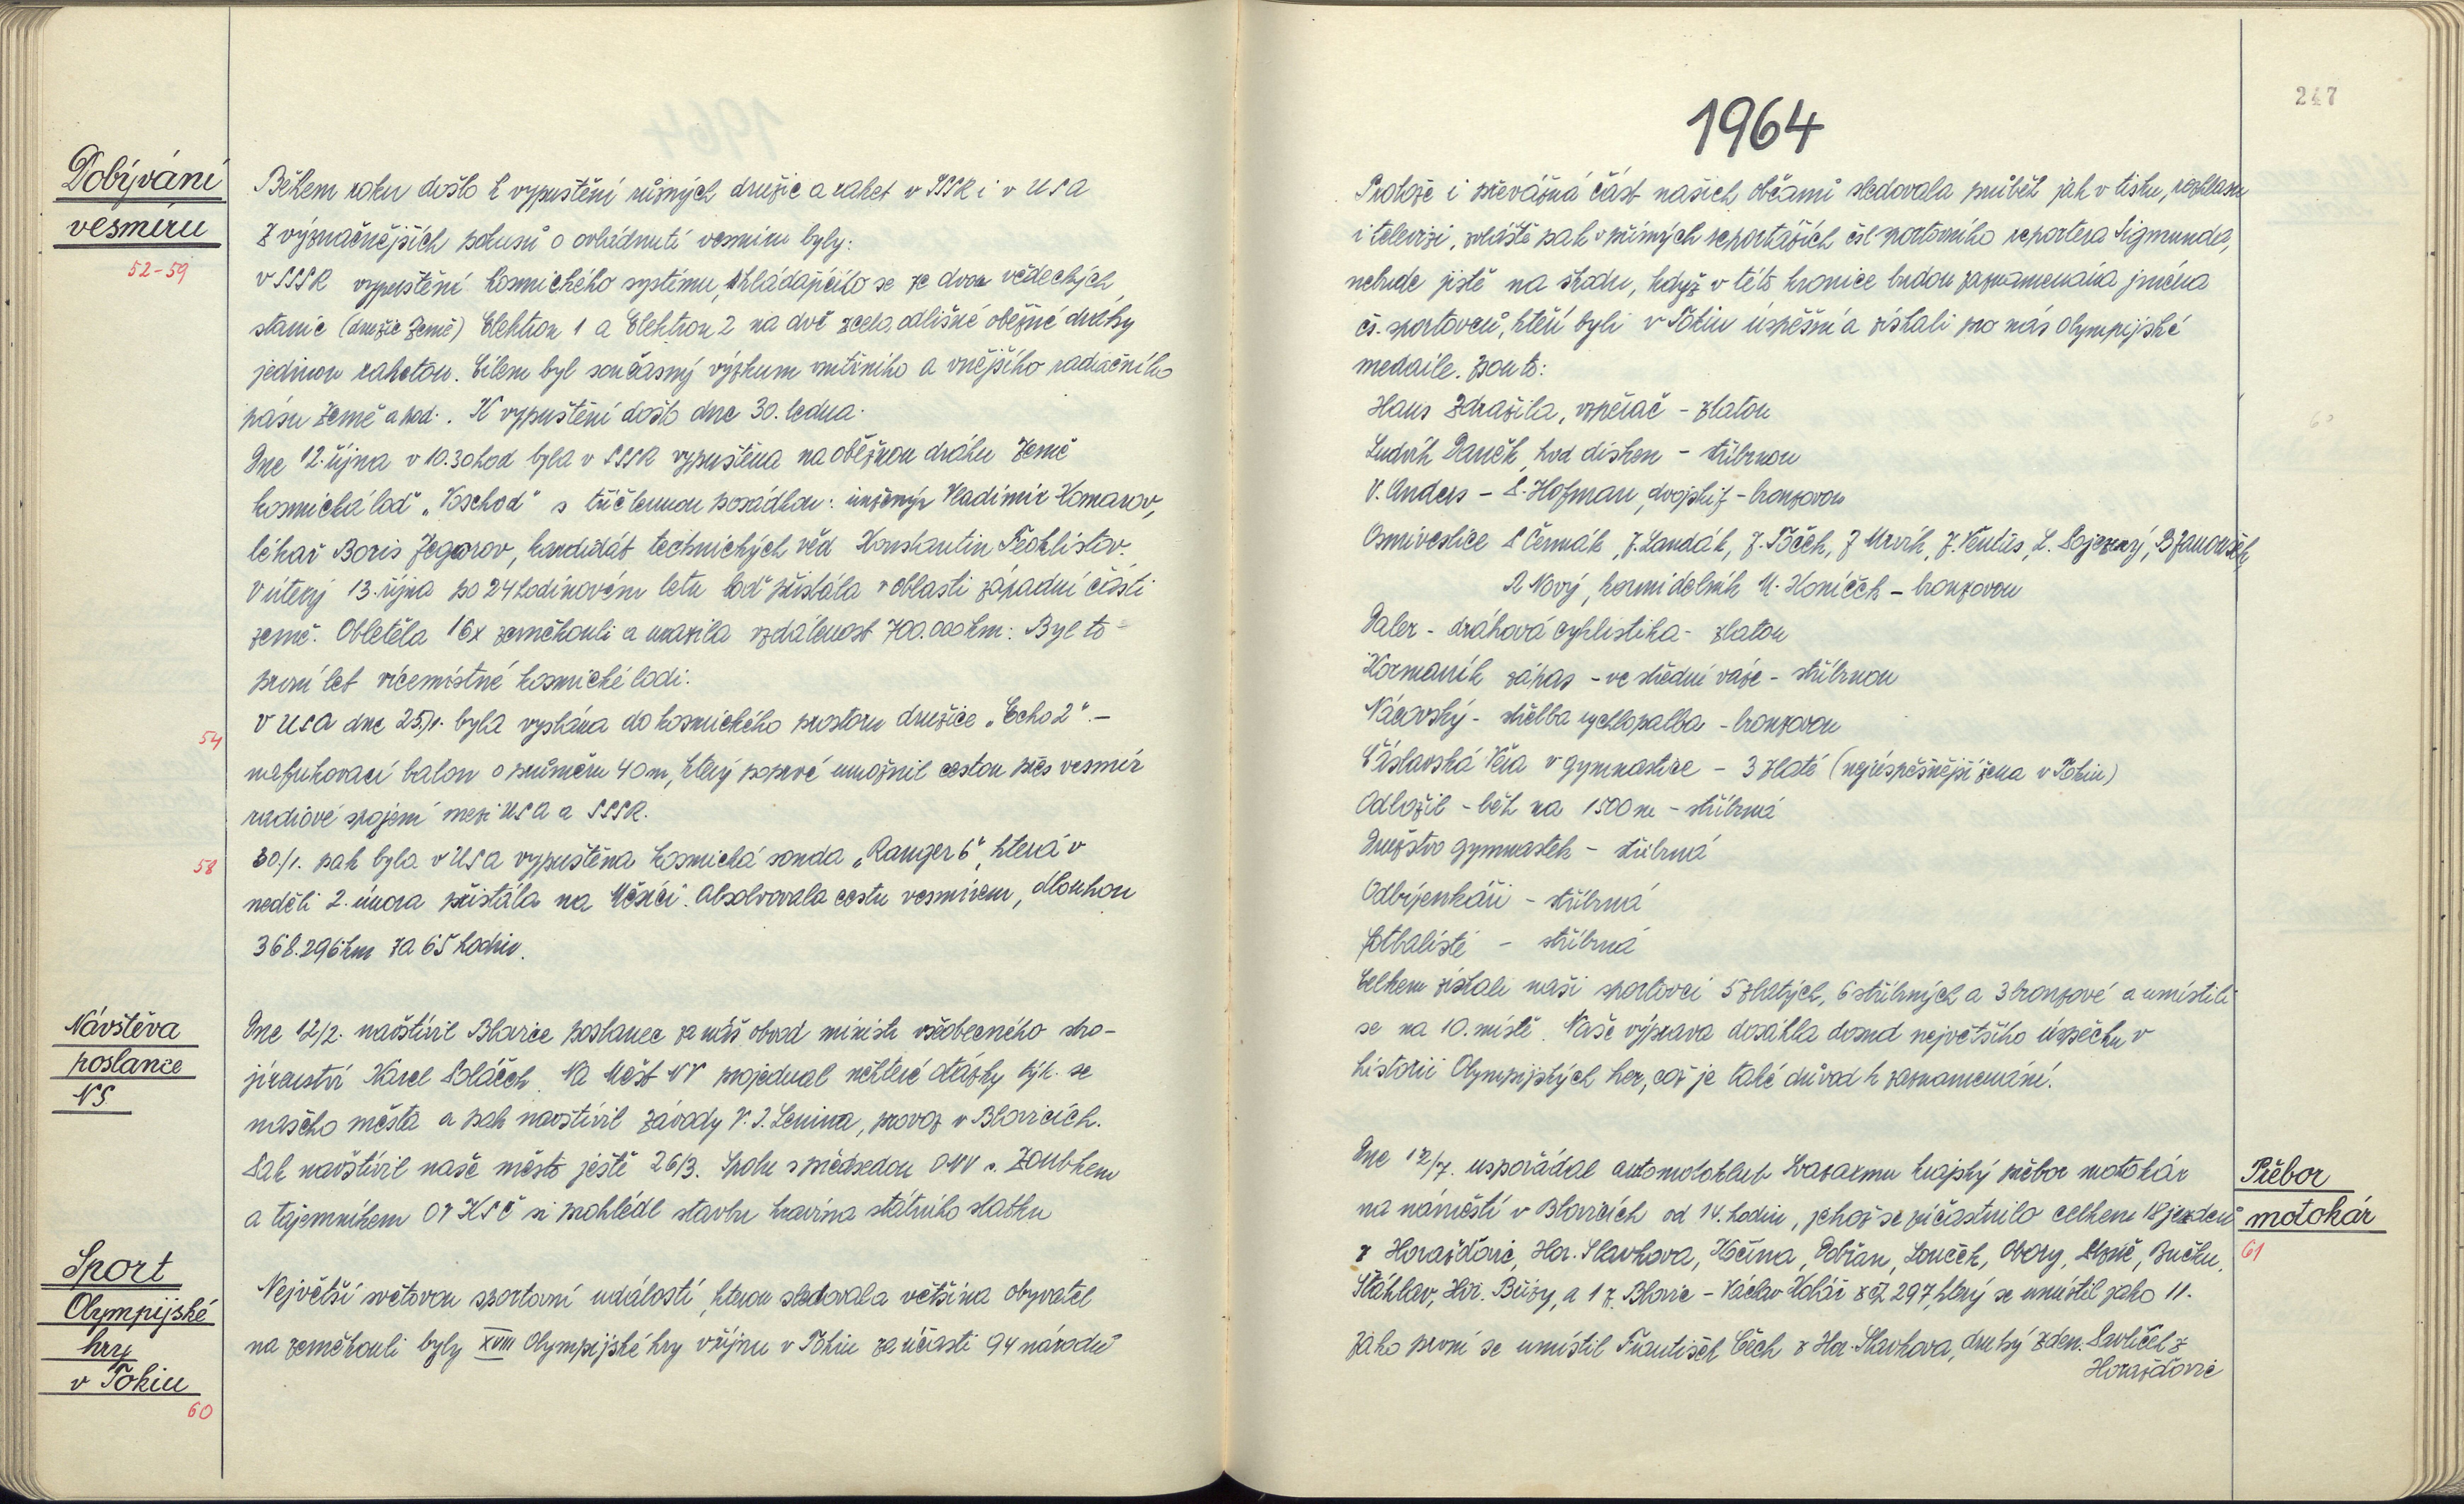 Dobývání
vesmíru
52-59
Během roku došlo k vypuštění různých družic a raket v SSSR i v USA
Z význačnějších pokusů o ovládnutí vesmíru byly:
v SSSR vypuštění kosmického systému, skládajícího se ze dvou vědeckých
stanic (družic Země) Elektron 1 a Elektron 2 na dvě zcela odlišné oběžné dráhy
jedinou raketou. Cílem byl současný výzkum vnitřního a vnějšího radiačního
pásu Země a pod. K vypuštění došlo dne 30. ledna.
Dne 12. října v 10.30 hod byla v SSSR vypuštěna na oběžnou dráhu Země
kosmická loď "Voschod" s tříčlennou posádkou: inženýr Vladimír Komarov,
lékař Boris Jegorov, kandidát technických věd Konstantin Feoklistov.
V úterý 13. října po 24 hodinovém letu loď přistála v oblasti západní části
země. Obletěla 16x zeměkouli a urazila vzdálenost 700.000 km. Byl to
první let vícemístné kosmické lodi.
54
V USA dne 25/1. byla vyslána do kosmického prostoru družice "Echo 2" -
nafukovací balon o průměru 40 m, který poprvé umožnil cestou přes vesmír
radiové spojení mezi USA a SSSR.
58
30./1. pak byla v USA vypuštěna kosmická sonda "Ranger 6", která v
neděli 2. února přistála na Měsíci. Absolvovala cestu vesmírem, dlouhou
368.296 km za 65 hodin.
Návštěva
poslance
NS
Dne 12/2. navštívil Blovice poslanec za náš obvod ministr všeobecného stro-
jírenství Karel Poláček. Na Měst NV projednal některé otázky týk. se
našeho města a pak navštívil závody V. I. Lenina, provoz v Blovicích.
Pak navštívil naše město ještě 26/3. Spolu s předsedou ONV s. Zoubkem
a tajemníkem OV KSČ si prohlédl stavbu kravína státního statku
Sport
Olympijské
hry
v Tokiu
60
Největší světovou sportovní událostí, kterou sledovala většina obyvatel
na zeměkouli byly XVIII Olympijské hry v říjnu v Tokiu za účasti 94 národů
247
1964
Protože i převážná část našich občanů sledovala průběh jak v tisku, rozhlasu
i televizi, zvláště pak v přímých reportážích čsl sportovního reportera Sigmunda,
nebude jistě na škodu, když v této kronice budou zaznamenána jména
čs. sportovců, kteří byli v Tokiu úspěšní a získali pro nás Olympijské
medaile. Jsou to:
Hans Zdražila, vzpěrač - zlatou
Ludvík Daněk, hod diskem - stříbrnou
V. Anders - P. Hofman, dvojskif - bronzovou
Osmiveslice P Čermák, J. Lundák, J. Toček, J Mrvík, J. Věntus, L. Pojezný, B Janoušek
R Nový, kormidelník M. Koníček - bronzovou
Daler - dráhová cyklistika - zlatou
Kormaník zápas - ve střední váze - stříbrnou
Nácovský - střelba rychlopalba - bronzovou
Čáslavská Věra v gymnastice - 3 zlaté (nejúspěšnější žena v Tokiu)
Odložil - běh na 1500 m - stříbrná
Družstvo gymnastek - stříbrná
Odbíjenkáři - stříbrná
fotbalisté - stříbrná
Celkem získali naši sportovci 5 zlatých, 6 stříbrných a 3 bronzové a umístili
se na 10. místě. Naše výprava dosáhla dosud největšího úspěchu v
historii Olympijských her, což je také důvod k zaznamenání.
Přebor
motokár
61
Dne 12/7. uspořádal automotoklub Svazarmu krajský přebor motokár
na náměstí v Blovicích od 14. hodin, jehož se zúčastnilo celkem 18 jezdců
z Horažďovic, Hor. Slavkova, Kočína, Dobřan, Louček, Obory, Plzně, Bučku,
Šťáhlav, Hor. Břízy, a 1 z Blovic - Václav Kolář z čp 297, který se umístil jako 11.
Jako první se umístil František Čech z Hor. Slavkova, druhý Zden. Pavlíček z
Horažďovic